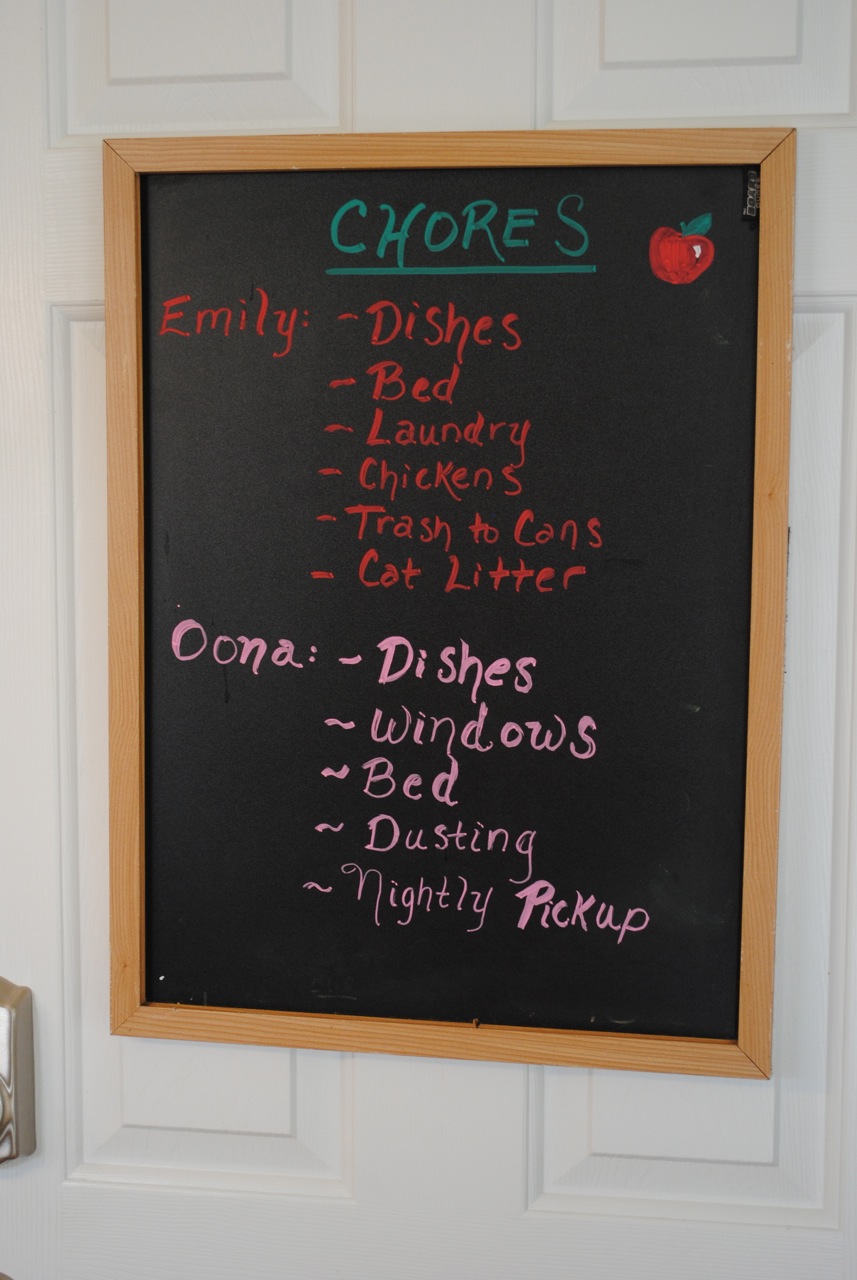 CHORES
Emily: - Dishes
- Bed
- Laundry
- Chickens
- Trash to Cans
- Cat Litter
Oona: - Dishes
~ Windows
~ Bed
~ Dusting
~ Nightly Pickup